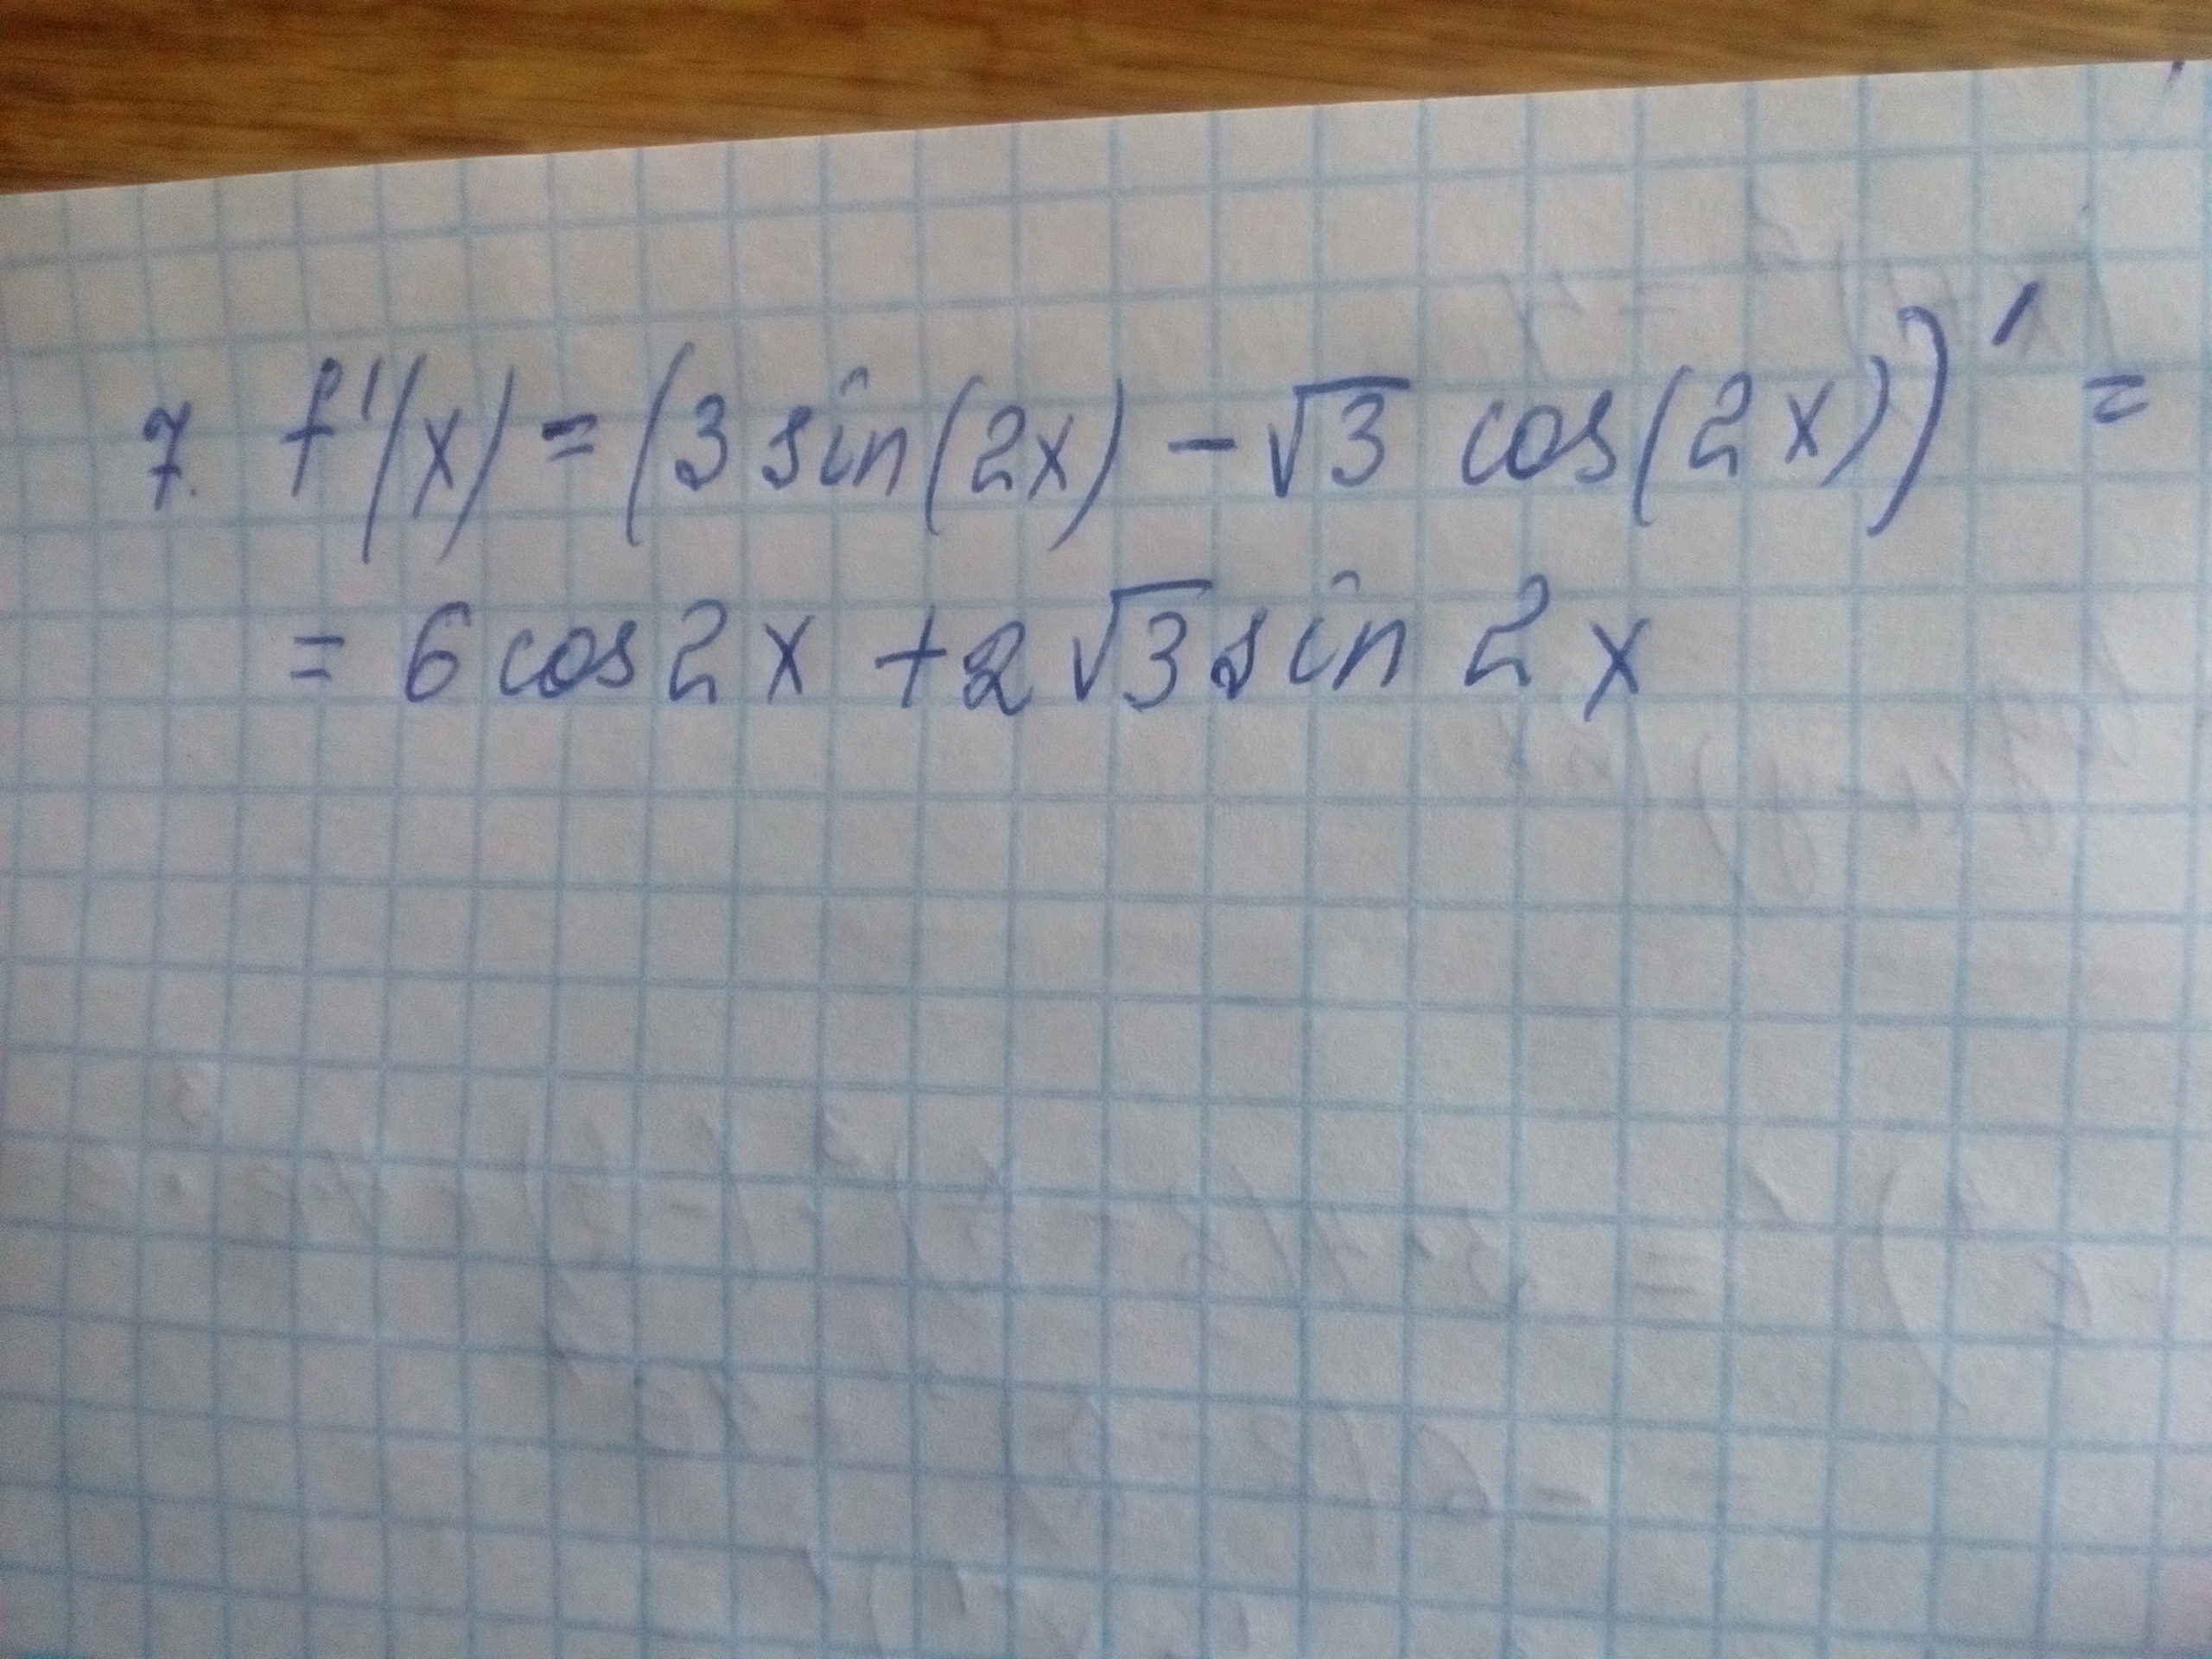 7. f'(x) = (3 sin(2x) - √3 cos(2x))' =
= 6 cos 2x + 2 √3 sin 2x